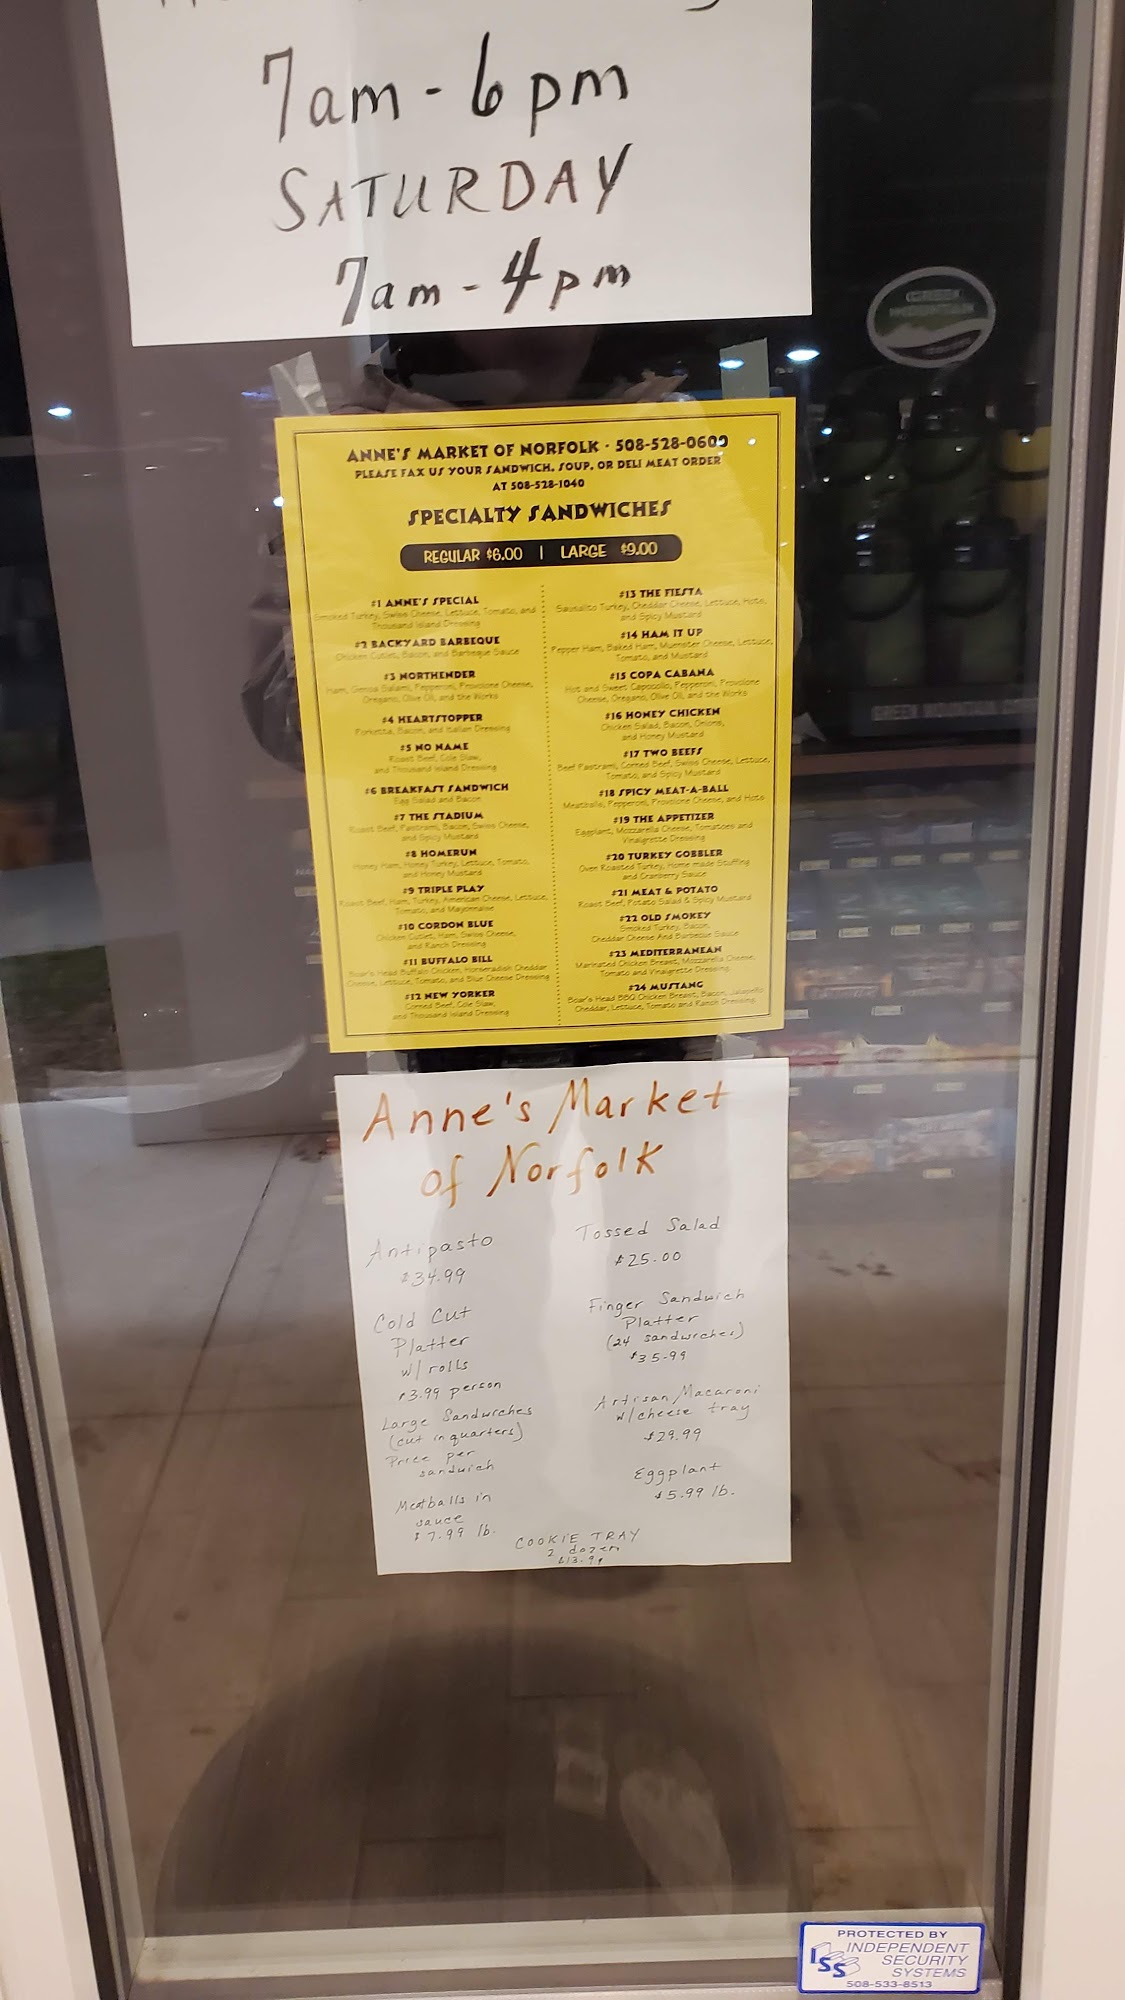 7am - 6pm
SATURDAY
7am - 4pm
GREEN
MOUNTAIN
ANNE'S MARKET OF NORFOLK · 508-528-0600
PLEASE FAX US YOUR SANDWICH, SOUP, OR DELI MEAT ORDER
AT 508-528-1040
SPECIALTY SANDWICHES
REGULAR $6.00 | LARGE $9.00
#1 ANNE'S SPECIAL
Smoked Turkey, Swiss Cheese, Lettuce, Tomato, and
Thousand Island Dressing
#2 BACKYARD BARBEQUE
Chicken Cutlet, Bacon, and Barbeque Sauce
#3 NORTHENDER
Ham, Genoa Salami, Pepperoni, Provolone Cheese,
Oregano, Olive Oil, and the Works
#4 HEARTSTOPPER
Porketta, Bacon, and Italian Dressing
#5 NO NAME
Roast Beef, Cole Slaw,
and Thousand Island Dressing
#6 BREAKFAST SANDWICH
Egg Salad and Bacon
#7 THE STADIUM
Roast Beef, Pastrami, Bacon, Swiss Cheese,
and Spicy Mustard
#8 HOMERUN
Honey Ham, Honey Turkey, Lettuce, Tomato,
and Honey Mustard
#9 TRIPLE PLAY
Roast Beef, Ham, Turkey, American Cheese, Lettuce,
Tomato, and Mayonnaise
#10 CORDON BLUE
Chicken Cutlet, Ham, Swiss Cheese,
and Ranch Dressing
#11 BUFFALO BILL
Boar's Head Buffalo Chicken, Horseradish Cheddar
Cheese, Lettuce, Tomato, and Blue Cheese Dressing
#12 NEW YORKER
Corned Beef, Cole Slaw,
and Thousand Island Dressing
#13 THE FIESTA
Sausalito Turkey, Cheddar Cheese, Lettuce, Hots,
and Spicy Mustard
#14 HAM IT UP
Pepper Ham, Baked Ham, Muenster Cheese, Lettuce,
Tomato, and Mustard
#15 COPA CABANA
Hot and Sweet Capocollo, Pepperoni, Provolone
Cheese, Oregano, Olive Oil, and the Works
#16 HONEY CHICKEN
Chicken Salad, Bacon, Onions,
and Honey Mustard
#17 TWO BEEFS
Beef Pastrami, Corned Beef, Swiss Cheese, Lettuce,
Tomato, and Spicy Mustard
#18 SPICY MEAT-A-BALL
Meatballs, Pepperoni, Provolone Cheese, and Hots
#19 THE APPETIZER
Eggplant, Mozzarella Cheese, Tomatoes and
Vinaigrette Dressing
#20 TURKEY GOBBLER
Oven Roasted Turkey, Home made Stuffing
and Cranberry Sauce
#21 MEAT & POTATO
Roast Beef, Potato Salad & Spicy Mustard
#22 OLD SMOKEY
Smoked Turkey, Bacon,
Cheddar Cheese And Barbeque Sauce
#23 MEDITERRANEAN
Marinated Chicken Breast, Mozzarella Cheese,
Tomato and Vinaigrette Dressing
#24 MUSTANG
Boar's Head BBQ Chicken Breast, Bacon, Jalapeño
Cheddar, Lettuce, Tomato and Ranch Dressing
GREEN MOUNTAIN
Anne's Market
of Norfolk
Antipasto
$34.99
Cold Cut
Platter
w/ rolls
$3.99 person
Large Sandwiches
(cut in quarters)
Price per
sandwich
Meatballs in
sauce
$7.99 lb.
Tossed Salad
$25.00
Finger Sandwich
Platter
(24 sandwiches)
$35.99
Artisan Macaroni
w/cheese tray
$29.99
Eggplant
$5.99 lb.
COOKIE TRAY
2 dozen
$13.99
PROTECTED BY
ISS INDEPENDENT
SECURITY
SYSTEMS
508-533-8513